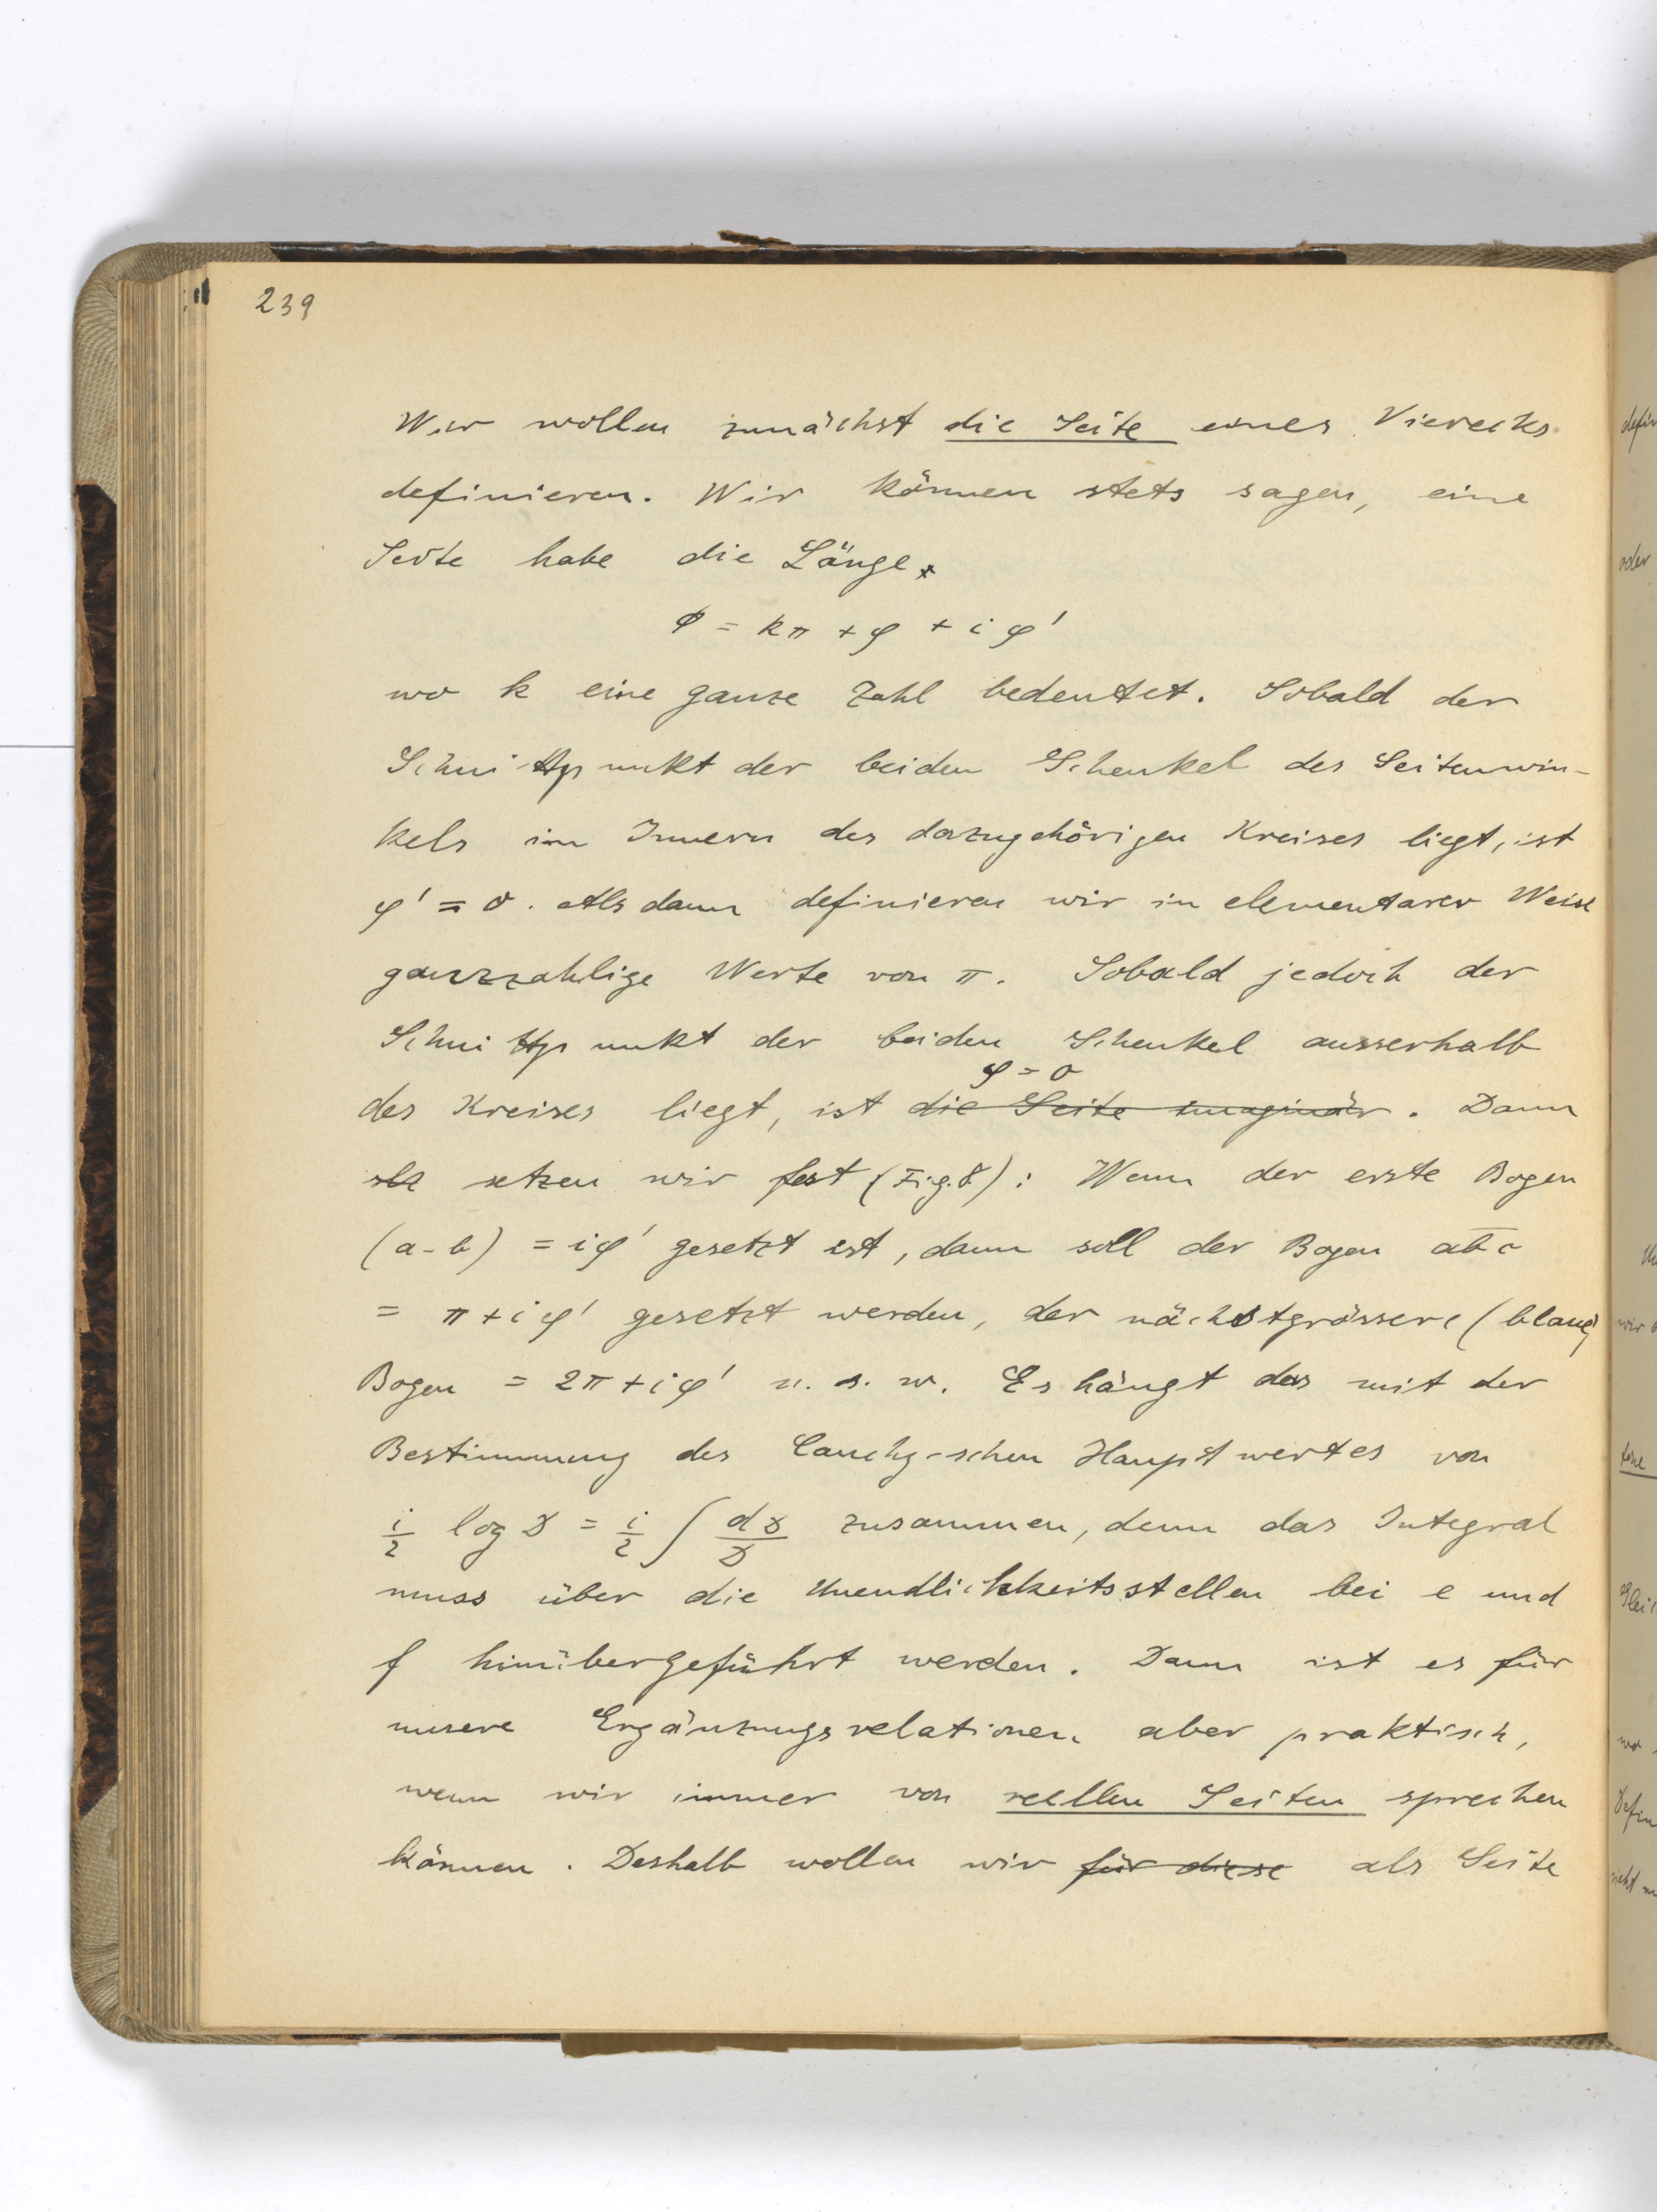 239
Wir wollen zunächst die Seite eines Vierecks
definieren. Wir können stets sagen, eine
Seite habe die Länge
Φ = kπ + φ + i φ'
wo k eine ganze Zahl bedeutet. Sobald der
Schnittpunkt der beiden Schenkel des Seitenwin-
kels im Innern des dazugehörigen Kreises liegt, ist
φ' = 0. Alsdann definieren wir in elementarer Weise
ganzzahlige Werte von π. Sobald jedoch der
Schnittpunkt der beiden Schenkel ausserhalb
φ = 0
des Kreises liegt, ist die Seite imaginär. Dann
setzen wir fest (Fig. 8): Wenn der erste Bogen
(a-b) = iφ' gesetzt ist, dann soll der Bogen abc
= π + iφ' gesetzt werden, der nächstgrössere (blaue)
Bogen = 2π + iφ' u. s. w. Es hängt das mit der
Bestimmung des Cauchy-schen Hauptwertes von
i/2 log D = i/2 ∫ dD/D zusammen, denn das Integral
muss über die Unendlichkeitsstellen bei e und
f hinübergeführt werden. Dann ist es für
unsere Ergänzungsrelationen aber praktisch,
wenn wir immer von reellen Seiten sprechen
können. Deshalb wollen wir für diese als Seite